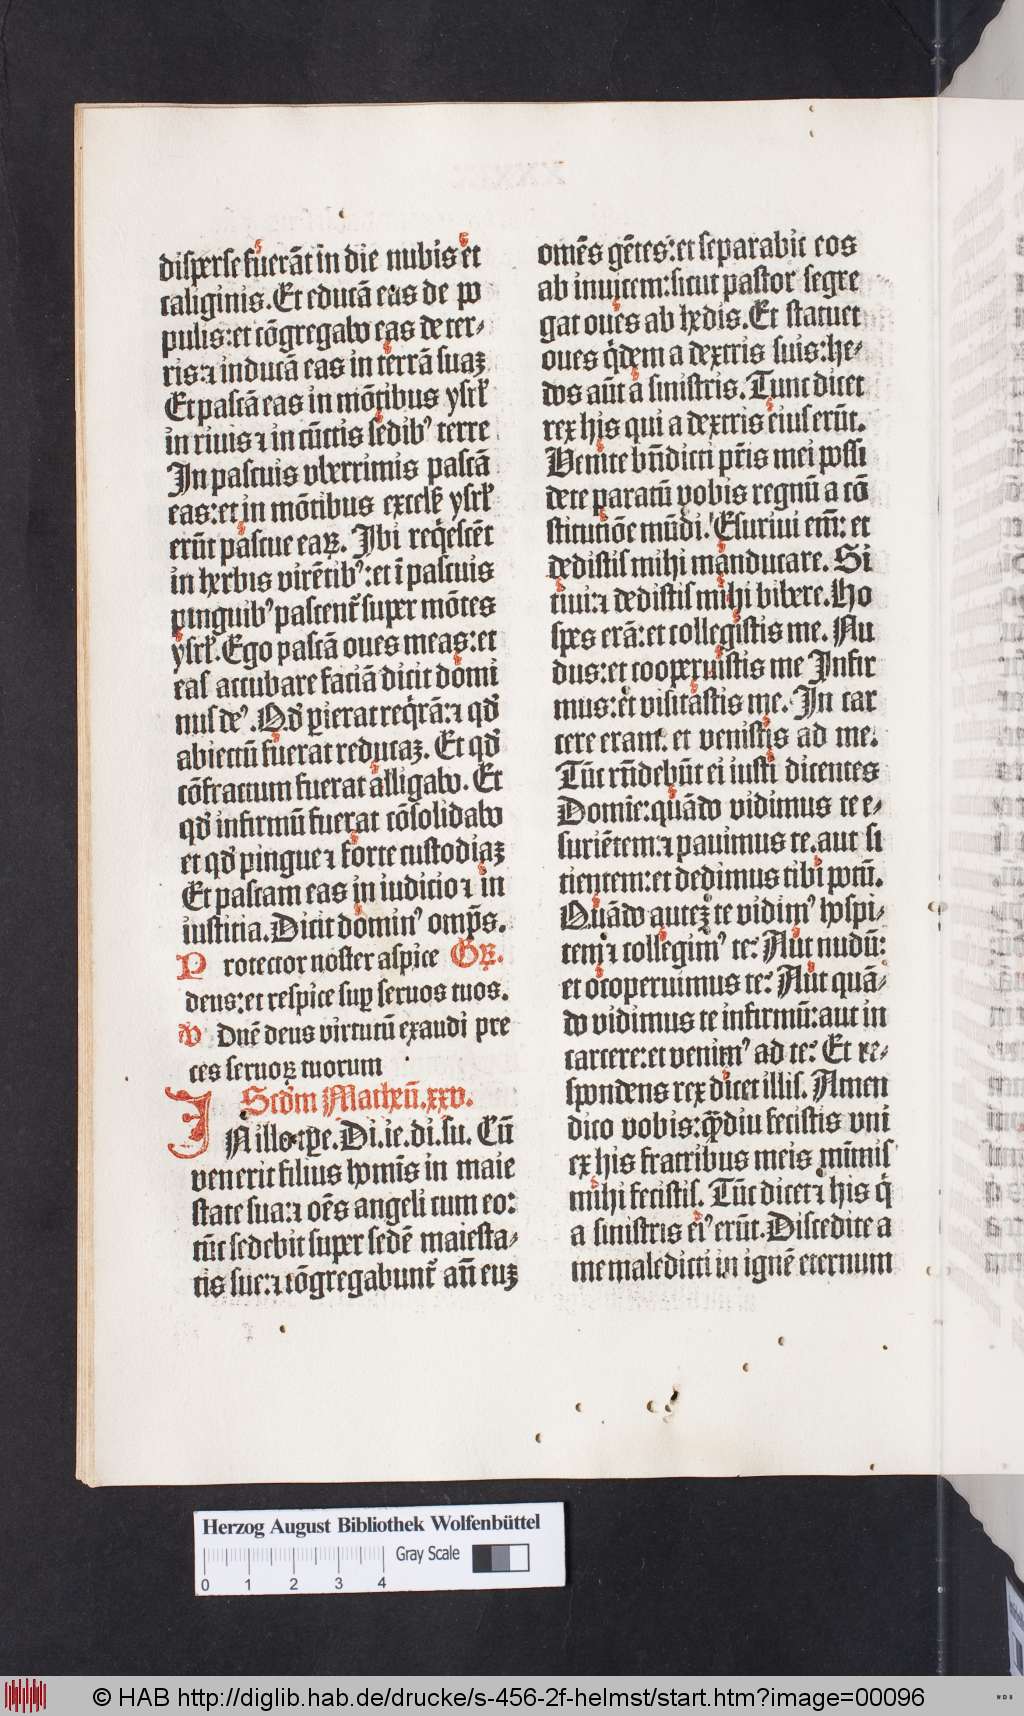 disperse fuerāt in die nubis et
caliginis. Et educā eas de po
pulis: et cōgregabo eas de ter⸗
ris ⁊ inducā eas in terrā suaꝫ
Et pascā eas in mōtibus ysrł
in riuis ⁊ in cūctis sedibꝰ terre
In pascuis vberrimis pascā
eas: et in mōtibus excels̄ ysrł
erūt pascue eaꝝ. Ibi reqͥescēt
in herbis virētibꝰ: et ī pascuis
pinguibꝰ pascent᷑ super mōtes
ysrł. Ego pascā oues meas: et
eas accubare faciā dicit domi
nus deꝰ. Qđ perierat reqͥrā: ⁊ qđ
abiectū fuerat reducaꝫ. Et qđ
cōfractum fuerat alligabo. Et
qđ infirmū fuerat cōsolidabo
et qđ pingue ⁊ forte custodiaꝫ
Et pascam eas in iudicio ⁊ in
iusticia. Dicit dominꝰ omp̄s.
Protector noster aspice Gꝝ.
deus: et respice suꝑ seruos tuos.
v Dn̄e deus virtutū exaudi pre
ces seruoꝝ tuorum
Scđm Matheū. xxv.
IN illo. tꝑe. Di. ie. di. su. Cū
venerit filius homīs in maie
state sua: ⁊ oēs angeli cum eo:
tūc sedebit super sedē maiesta⸗
tis sue: ⁊ cōgregabunt᷑ añ euꝫ
omēs gētes: et separabit eos
ab inuicem: sicut pastor segre
gat oues ab hedis. Et statuet
oues qͥdem a dextris suis: he⸗
dos aūt a sinistris. Tunc dicet
rex his qui a dextris eius erūt.
Venite bn̄dicti pr̄is mei possi
dete paratū vobis regnū a cō
stitucōe mūdi. Esuriui em̄: et
dedistis mihi manducare. Si
tiui: ⁊ dedistis mihi bibere. Ho
spes erā: et collegistis me. Nu
dus: et cooperuistis me Infir
mus: et visitastis me. In car
cere eram. et venistis ad me.
Tūc rn̄debūt ei iusti dicentes
Domīe: quādo vidimus te e⸗
suriētem: ⁊ pauimus te. aut si
tientem: et dedimus tibi potū.
Quādo auteꝫ te vidimꝰ hospi⸗
tem ⁊ collegimꝰ te? Aut nudū:
et cooperuimus te? Aut quā⸗
do vidimus te infirmū: aut in
carcere: et venimꝰ ad te? Et re⸗
spondens rex dicet illis. Amen
dico vobis: qͣ̄diu fecistis vni
ex his fratribus meis minimis
mihi fecistis. Tūc dicet ⁊ his qͥ
a sinistris eiꝰ erūt. Discedite a
me maledicti in ignē eternum
Herzog August Bibliothek Wolfenbüttel
Gray Scale
0 1 2 3 4
© HAB http://diglib.hab.de/drucke/s-456-2f-helmst/start.htm?image=00096